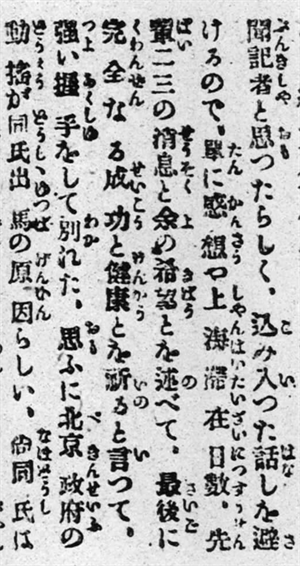 聞記者と思つたらしく、込み入つた話しを避
けるので、單に感想や上海滯在日數、先
輩二三の消息と余の希望とを述べて、最後に
完全なる成功と健康とを祈ると言つて、
强い握手をして別れた、思ふに北京政府の
動搖が同氏出馬の原因らしい、尙同氏は